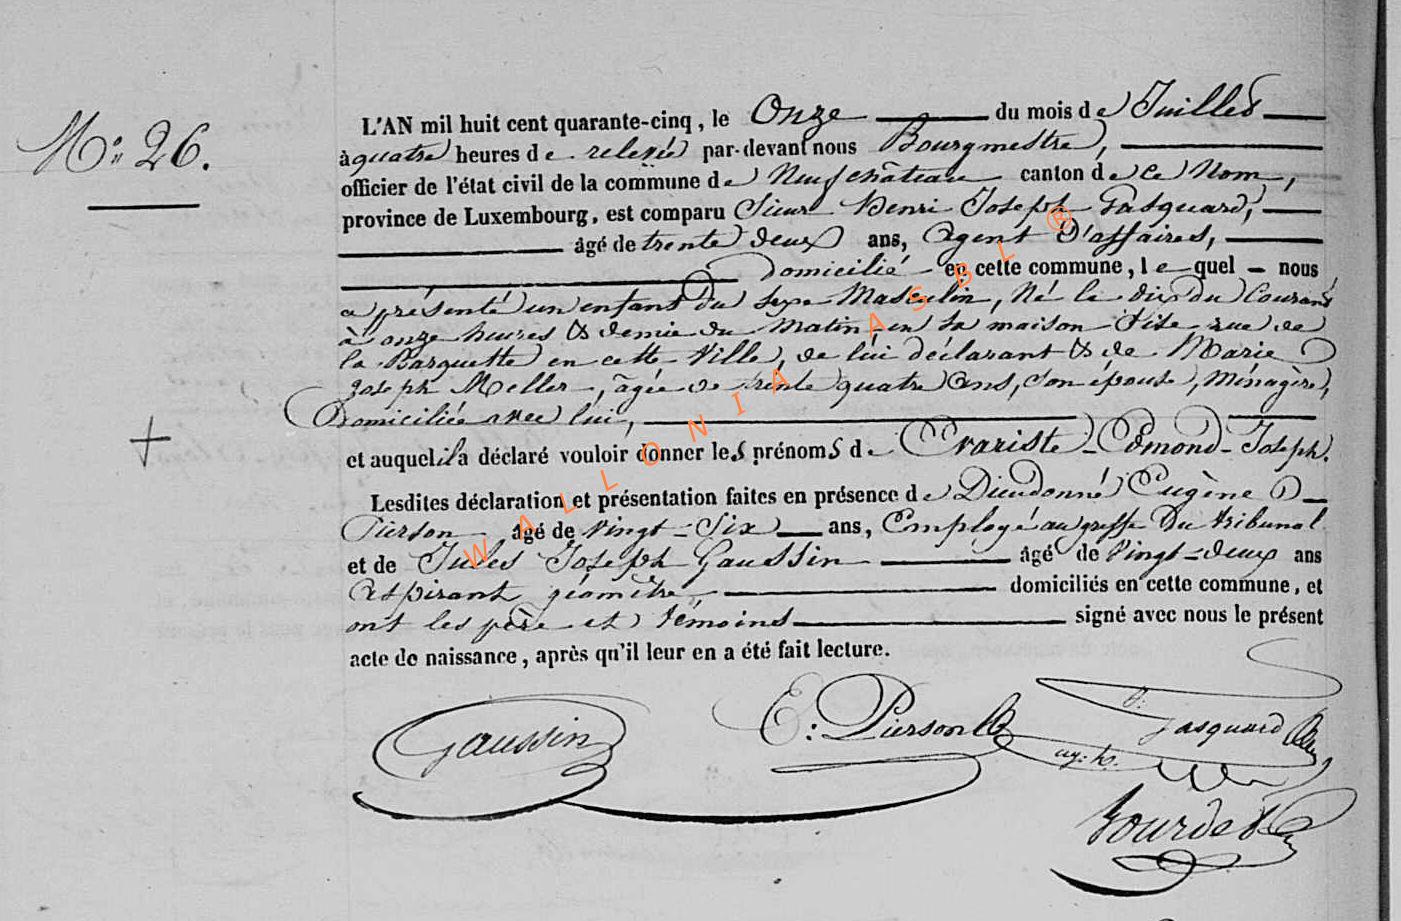 N.º 26.
L'AN mil huit cent quarante-cinq, le Onze du mois de Juillet
à quatre heures de relevée par-devant nous Bourgmestre,
officier de l'état civil de la commune de Neufchâteau canton de ce Nom,
province de Luxembourg, est comparu Sieur Henri Joseph Gasquard,
âgé de trente deux ans, Agent d'affaires,
Domicilié en cette commune, lequel nous
a présenté un enfant du sexe Masculin, Né le dix du Courant
à onze heures & demie du Matin en sa maison Sise rue de
la Barquette en cette Ville, de lui déclarant & de Marie
Joseph Meller, âgée de trente quatre ans, son épouse, Ménagère,
Domiciliée avec lui,
et auquel il a déclaré vouloir donner les prénoms de Evariste-Edmond-Joseph.
Lesdites déclaration et présentation faites en présence de Dieudonné Eugène
Pierson âgé de Vingt-Six ans, Employé au greffe du tribunal
et de Jules Joseph Gaussin âgé de Vingt-deux ans
Aspirant géomètre, domiciliés en cette commune, et
ont les père et témoins signé avec nous le présent
acte de naissance, après qu'il leur en a été fait lecture.
Gaussin E: Pierson Gasquard
WALLONIA ASBL ®